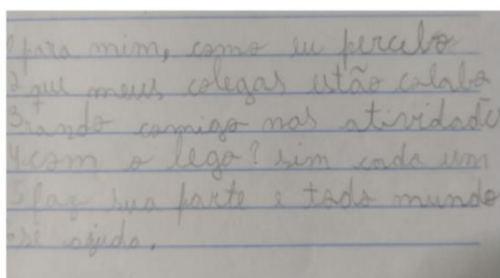 1 para mim, como eu percebo
2 que meus colegas estão colabo
3 rando comigo nas atividade
4 com o lego? sim cada um
5 faz sua parte e todo mundo
se ajuda.